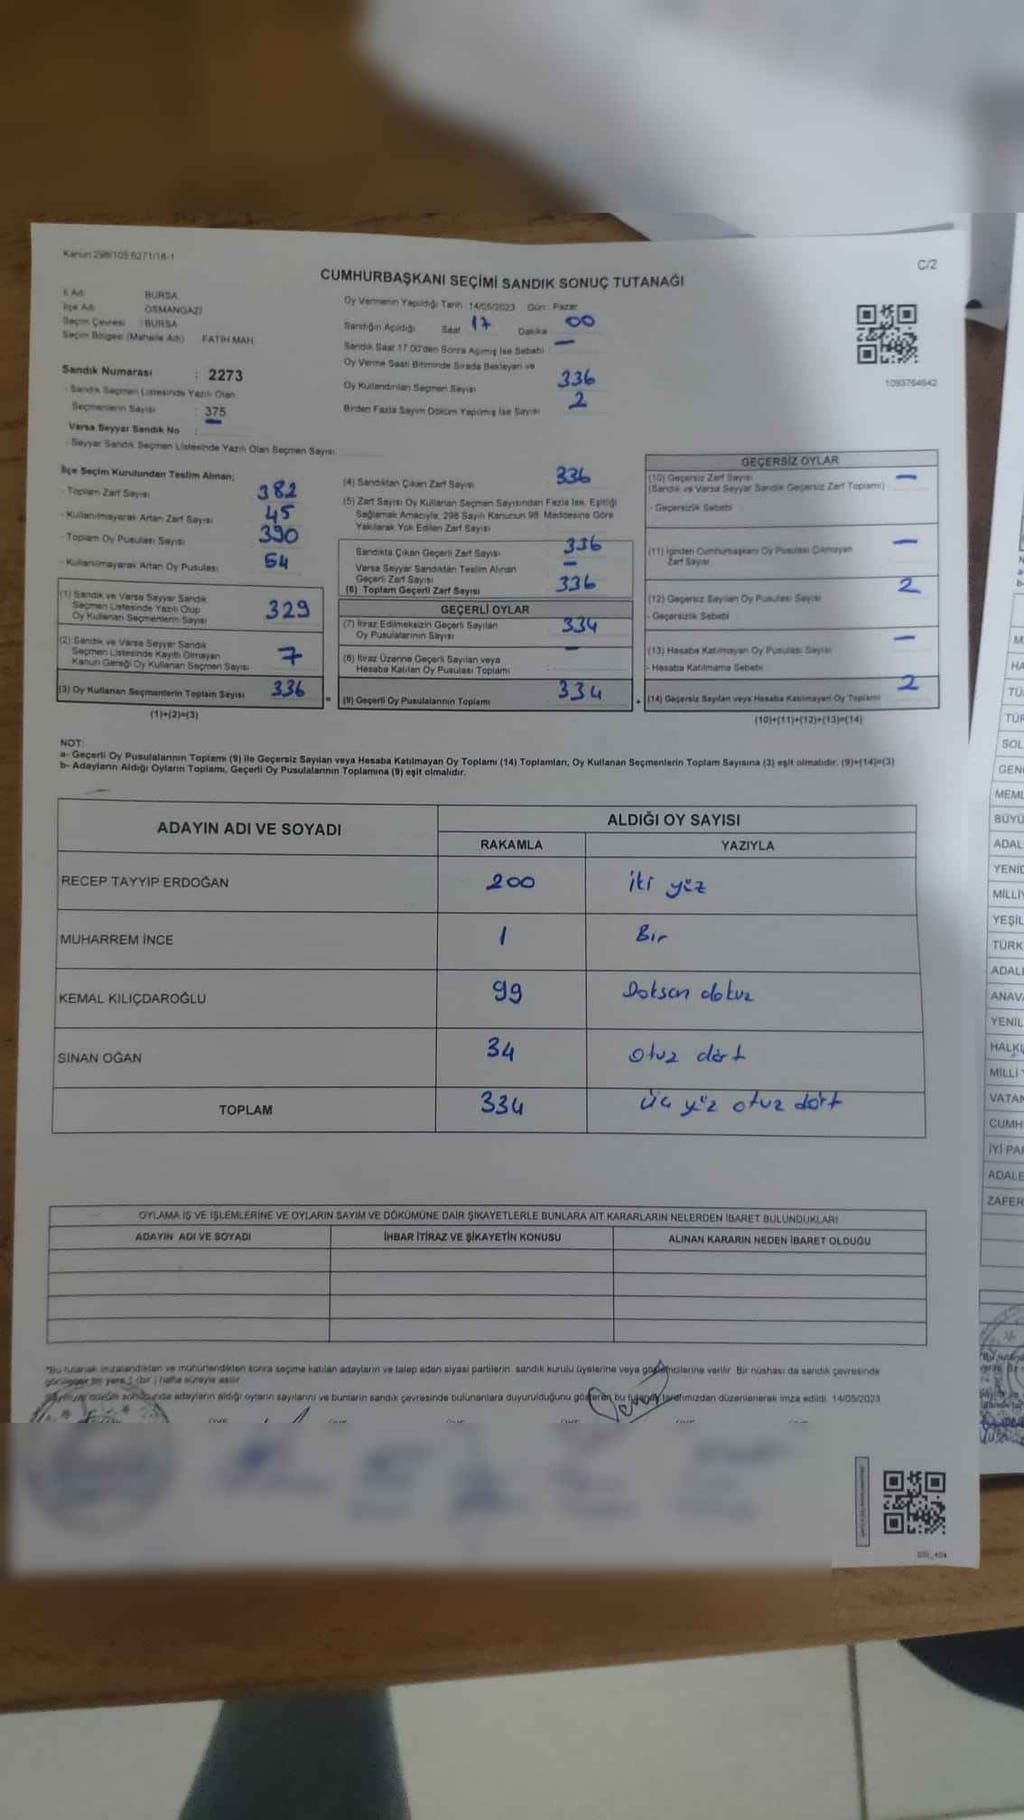 Kanun 298/105 6271/18-1
C/2
CUMHURBAŞKANI SEÇİMİ SANDIK SONUÇ TUTANAĞI
İl Adı : BURSA
İlçe Adı : OSMANGAZİ
Seçim Çevresi : BURSA
Seçim Bölgesi (Mahalle Adı) FATİH MAH.
Sandık Numarası : 2273
- Sandık Seçmen Listesinde Yazılı Olan
Seçmenlerin Sayısı : 375
Varsa Seyyar Sandık No :
- Seyyar Sandık Seçmen Listesinde Yazılı Olan Seçmen Sayısı
Oy Vermenin Yapıldığı Tarih 14/05/2023 Gün : Pazar
Sandığın Açıldığı Saat 17 Dakika 00
Sandık Saat 17.00'den Sonra Açımış İse Sebebi : —
Oy Verme Saati Bitiminde Sırada Bekleyen ve
Oy Kullandırılan Seçmen Sayısı 336
Birden Fazla Sayım Döküm Yapılmış İse Sayısı 2
1093764642
İlçe Seçim Kurulundan Teslim Alınan;
- Toplam Zarf Sayısı 382
- Kullanılmayarak Artan Zarf Sayısı 45
- Toplam Oy Pusulası Sayısı 390
- Kullanılmayarak Artan Oy Pusulası 54
(1) Sandık ve Varsa Seyyar Sandık
Seçmen Listesinde Yazılı Olup
Oy Kullanan Seçmenlerin Sayısı 329
(2) Sandık ve Varsa Seyyar Sandık
Seçmen Listesinde Kayıtlı Olmayan
Kanun Gereği Oy Kullanan Seçmen Sayısı 7
(3) Oy Kullanan Seçmenlerin Toplam Sayısı 336
(1)+(2)=(3)
(4) Sandıktan Çıkan Zarf Sayısı 336
(5) Zarf Sayısı Oy Kullanan Seçmen Sayısından Fazla İse, Eşitliği
Sağlamak Amacıyla, 298 Sayılı Kanunun 98. Maddesine Göre
Yakılarak Yok Edilen Zarf Sayısı
Sandıkta Çıkan Geçerli Zarf Sayısı 336
Varsa Seyyar Sandıktan Teslim Alınan
Geçerli Zarf Sayısı —
(6) Toplam Geçerli Zarf Sayısı 336
GEÇERLİ OYLAR
(7) İtiraz Edilmeksizin Geçerli Sayılan
Oy Pusulalarının Sayısı 334
(8) İtiraz Üzerine Geçerli Sayılan veya
Hesaba Katılan Oy Pusulası Toplamı —
(9) Geçerli Oy Pusulalarının Toplamı 334
GEÇERSİZ OYLAR
(10) Geçersiz Zarf Sayısı —
(Sandık ve Varsa Seyyar Sandık Geçersiz Zarf Toplamı)
- Geçersizlik Sebebi
(11) İçinden Cumhurbaşkanı Oy Pusulası Çıkmayan
Zarf Sayısı —
(12) Geçersiz Sayılan Oy Pusulası Sayısı 2
- Geçersizlik Sebebi
(13) Hesaba Katılmayan Oy Pusulası Sayısı —
- Hesaba Katılmama Sebebi
(14) Geçersiz Sayılan veya Hesaba Katılmayan Oy Toplamı 2
(10)+(11)+(12)+(13)=(14)
NOT:
a- Geçerli Oy Pusulalarının Toplamı (9) ile Geçersiz Sayılan veya Hesaba Katılmayan Oy Toplamı (14) Toplamları, Oy Kullanan Seçmenlerin Toplam Sayısına (3) eşit olmalıdır. (9)+(14)=(3)
b- Adayların Aldığı Oyların Toplamı, Geçerli Oy Pusulalarının Toplamına (9) eşit olmalıdır.
ADAYIN ADI VE SOYADI ALDIĞI OY SAYISI
RAKAMLA YAZIYLA
RECEP TAYYİP ERDOĞAN 200 iki yüz
MUHARREM İNCE 1 Bir
KEMAL KILIÇDAROĞLU 99 Doksan dokuz
SİNAN OĞAN 34 otuz dört
TOPLAM 334 üç yüz otuz dört
OYLAMA İŞ VE İŞLEMLERİNE VE OYLARIN SAYIM VE DÖKÜMÜNE DAİR ŞİKAYETLERLE BUNLARA AİT KARARLARIN NELERDEN İBARET BULUNDUKLARI
ADAYIN ADI VE SOYADI İHBAR İTİRAZ VE ŞİKAYETİN KONUSU ALINAN KARARIN NEDEN İBARET OLDUĞU
*Bu tutanak imzalandıktan ve mühürlendikten sonra seçime katılan adayların ve talep eden siyasi partilerin sandık kurulu üyelerine veya gözlemcilerine verilir. Bir nüshası da sandık çevresinde
bir yere 1 (bir) hafta süreyle asılır.
döküm sonucunda adayların aldığı oyların sayılarını ve bunların sandık çevresinde bulunanlara duyurulduğunu gösteren bu tutanak tarafımızdan düzenlenerek imza edildi. 14/05/2023
TÜRK
SOL
GENÇ
MEML
BÜYÜ
ADAL
YENİD
MİLLİY
YEŞİL
TÜRK
ADALE
ANAVA
YENİL
HALKI
MİLLİ
VATAN
CUMH
İYİ PA
ADALE
ZAFER